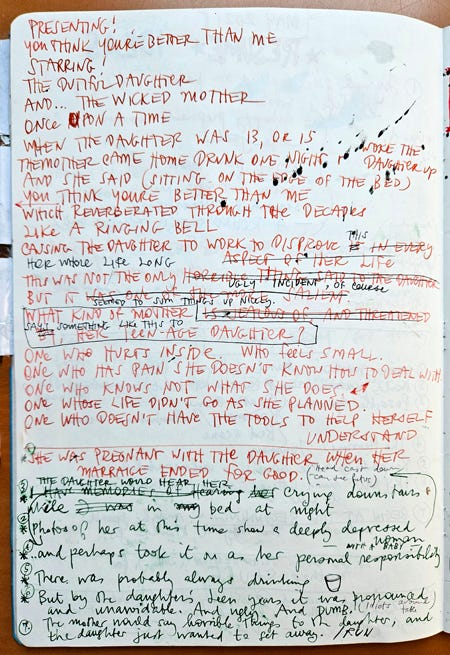 PRESENTING!
YOU THINK YOU'RE BETTER THAN ME
STARRING!
THE DUTIFUL DAUGHTER
AND... THE WICKED MOTHER
ONCE UPON A TIME
WHEN THE DAUGHTER WAS 13, OR 15
THE MOTHER CAME HOME DRUNK ONE NIGHT WOKE THE DAUGHTER UP
AND SHE SAID (SITTING ON THE EDGE OF THE BED)
YOU THINK YOU'RE BETTER THAN ME
WHICH REVERBERATED THROUGH THE DECADES
LIKE A RINGING BELL
CAUSING THE DAUGHTER TO WORK TO DISPROVE THIS IN EVERY
HER WHOLE LIFE LONG ASPECT OF HER LIFE
THIS WAS NOT THE ONLY HORRIBLE THING SAID TO THE DAUGHTER
UGLY "INCIDENT", OF COURSE
BUT IT WAS ONE OF THE MOST SALIENT.
SEEMED TO SUM THINGS UP NICELY.
WHAT KIND OF MOTHER IS JEALOUS OF AND THREATENED
SAYS SOMETHING LIKE THIS TO
HER TEEN-AGE DAUGHTER?
ONE WHO HURTS INSIDE. WHO FEELS SMALL.
ONE WHO HAS PAIN SHE DOESN'T KNOW HOW TO DEAL WITH.
ONE WHO KNOWS NOT WHAT SHE DOES.
ONE WHOSE LIFE DIDN'T GO AS SHE PLANNED.
ONE WHO DOESN'T HAVE THE TOOLS TO HELP HERSELF
UNDERSTAND
SHE WAS PREGNANT WITH THE DAUGHTER WHEN HER
MARRAIGE ENDED FOR GOOD. (Head cast down
(can see fetus)
THE DAUGHTER WOULD HEAR HER
I HAVE MEMORIES OF Hearing her crying downstairs
while I was in my bed at night
Photos of her at this time show a deeply depressed
woman
WITH A BABY
...and perhaps took it on as her personal responsibility
There was probably always drinking
But by the daughter's teen years it was pronounced,
and unavoidable. And ugly. And DUMB. (Idiots
The mother would say horrible things to the daughter, and
the daughter just wanted to get away. / RUN